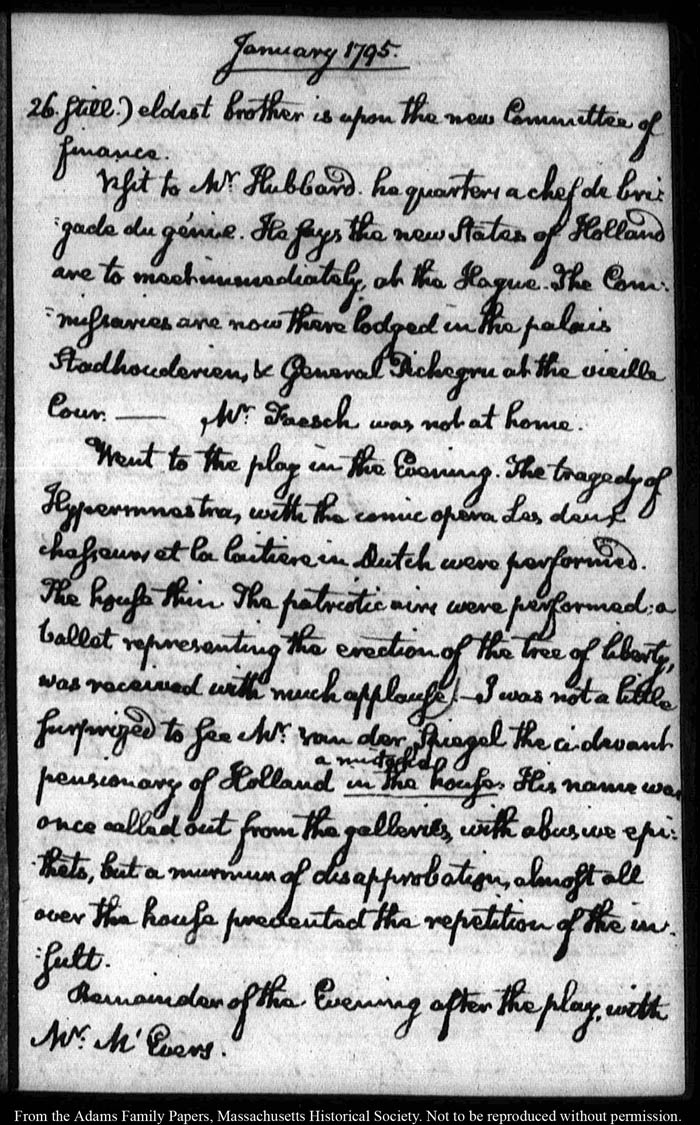 January 1795.
26. Still.) eldest brother is upon the new Committee of
finance.
Visit to Mr. Hubbard. he quarters a chef de bri-
gade du génie. He says the new States of Holland
are to meet immediately, at the Hague. The Com-
missaries are now there lodged in the palais
Stadhouderien, & General Pichegru at the vieille
Cour. — Mr. Faesch was not at home.
Went to the play in the Evening. The tragedy of
Hypermnestra, with the comic opera Les deux
chasseurs et la laitiere in Dutch were performed.
The house thin. The patriotic airs were performed: a
ballet representing the erection of the tree of liberty,
was received with much applause!—I was not a little
surprized to see Mr. van der Spiegel the ci-devant
a mistake
pensionary of Holland in the house. His name was
once called out from the galleries, with abusive epi-
thets, but a murmur of disapprobation, almost all
over the house prevented the repetition of the in-
sult.
Remainder of the Evening after the play, with
Mr. M'Evers.
From the Adams Family Papers, Massachusetts Historical Society. Not to be reproduced without permission.